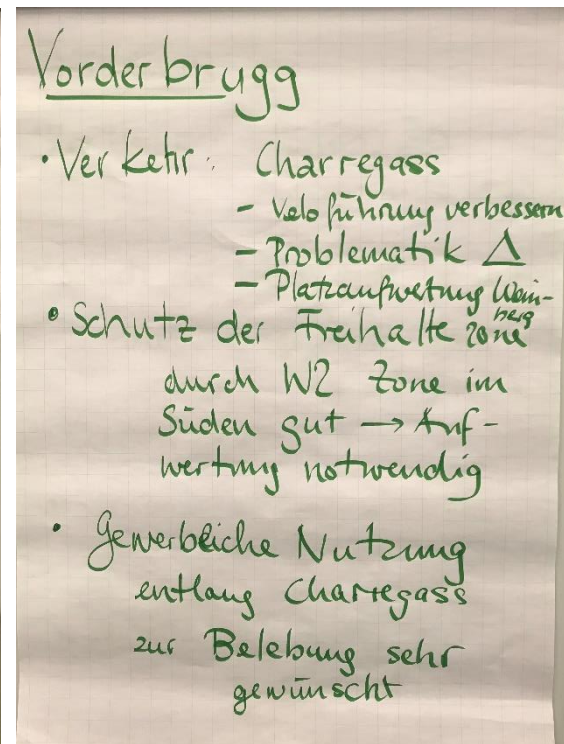 Vorderbrugg
• Verkehr: Charregass
- Veloführung verbessern
- Problematik Δ
- Platzaufwertung Wein-
berg
• Schutz der Freihaltezone
durch W2 Zone im
Süden gut → Auf-
wertung notwendig
• Gewerbliche Nutzung
entlang Charregass
zur Belebung sehr
gewünscht